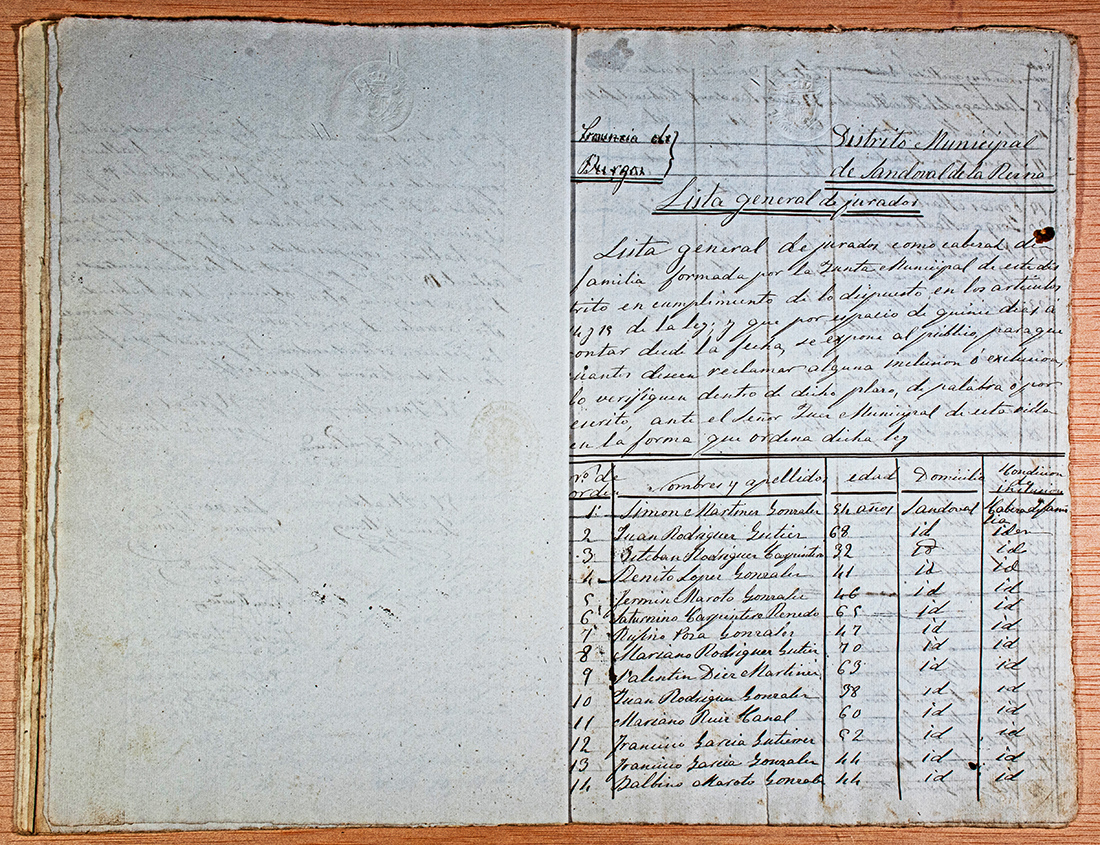 Provincia de
Burgos
Distrito Municipal
de Sandoval de la Reina
Lista general de jurados
Lista general de jurados como cabezas de
familia formada por la Junta Municipal de este dis
trito en cumplimiento de lo dispuesto en los articulos
y 19 de la ley; y que por espacio de quince dias á
ontar desde la fecha, se expone al publico, para que
cuantos deseen reclamar alguna inclusion ó exclusion,
lo verifiquen dentro de dicho plazo, de palabra o por
escrito, ante el Señor Juez Municipal de esta villa
en la forma que ordena dicha ley
Nº de orden Nombres y apellidos edad Domicilio Condicion inclusion
1 Simon Martinez Gonzalez 54 años Sandoval Cabeza de familia
2 Juan Rodriguez Gutier 68 id idem
3 Esteban Rodriguez Carpintero 32 id id
4 Benito Lopez Gonzalez 41 id id
5 Fermin Maroto Gonzalez 46 id id
6 Saturnino Carpintero Renedo 65 id id
7 Rufino Poza Gonzalez 47 id id
8 Mariano Rodriguez Gutier 70 id id
9 Valentin Diez Martinez 63 id id
10 Juan Rodriguez Gonzalez 38 id id
11 Mariano Ruiz Canal 60 id id
12 Francisco Garcia Gutierrez 52 id id
13 Francisco Garcia Gonzalez 44 id id
14 Balbino Maroto Gonzalez 44 id id